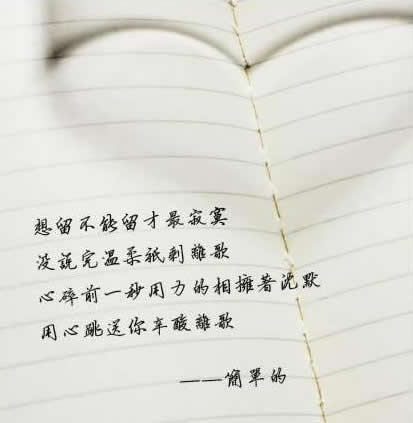 想留不能留才最寂寞
没說完溫柔祇剩離歌
心碎前一秒用力的相擁著沈默
用心跳送你辛酸離歌
——簡單的